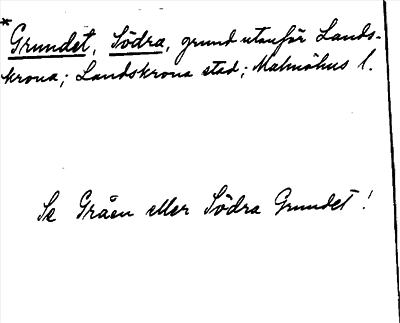 * Grundet, Södra, grund utanför Lands-
krona; Landskrona stad; Malmöhus l.
Se Gråen eller Södra Grundet!